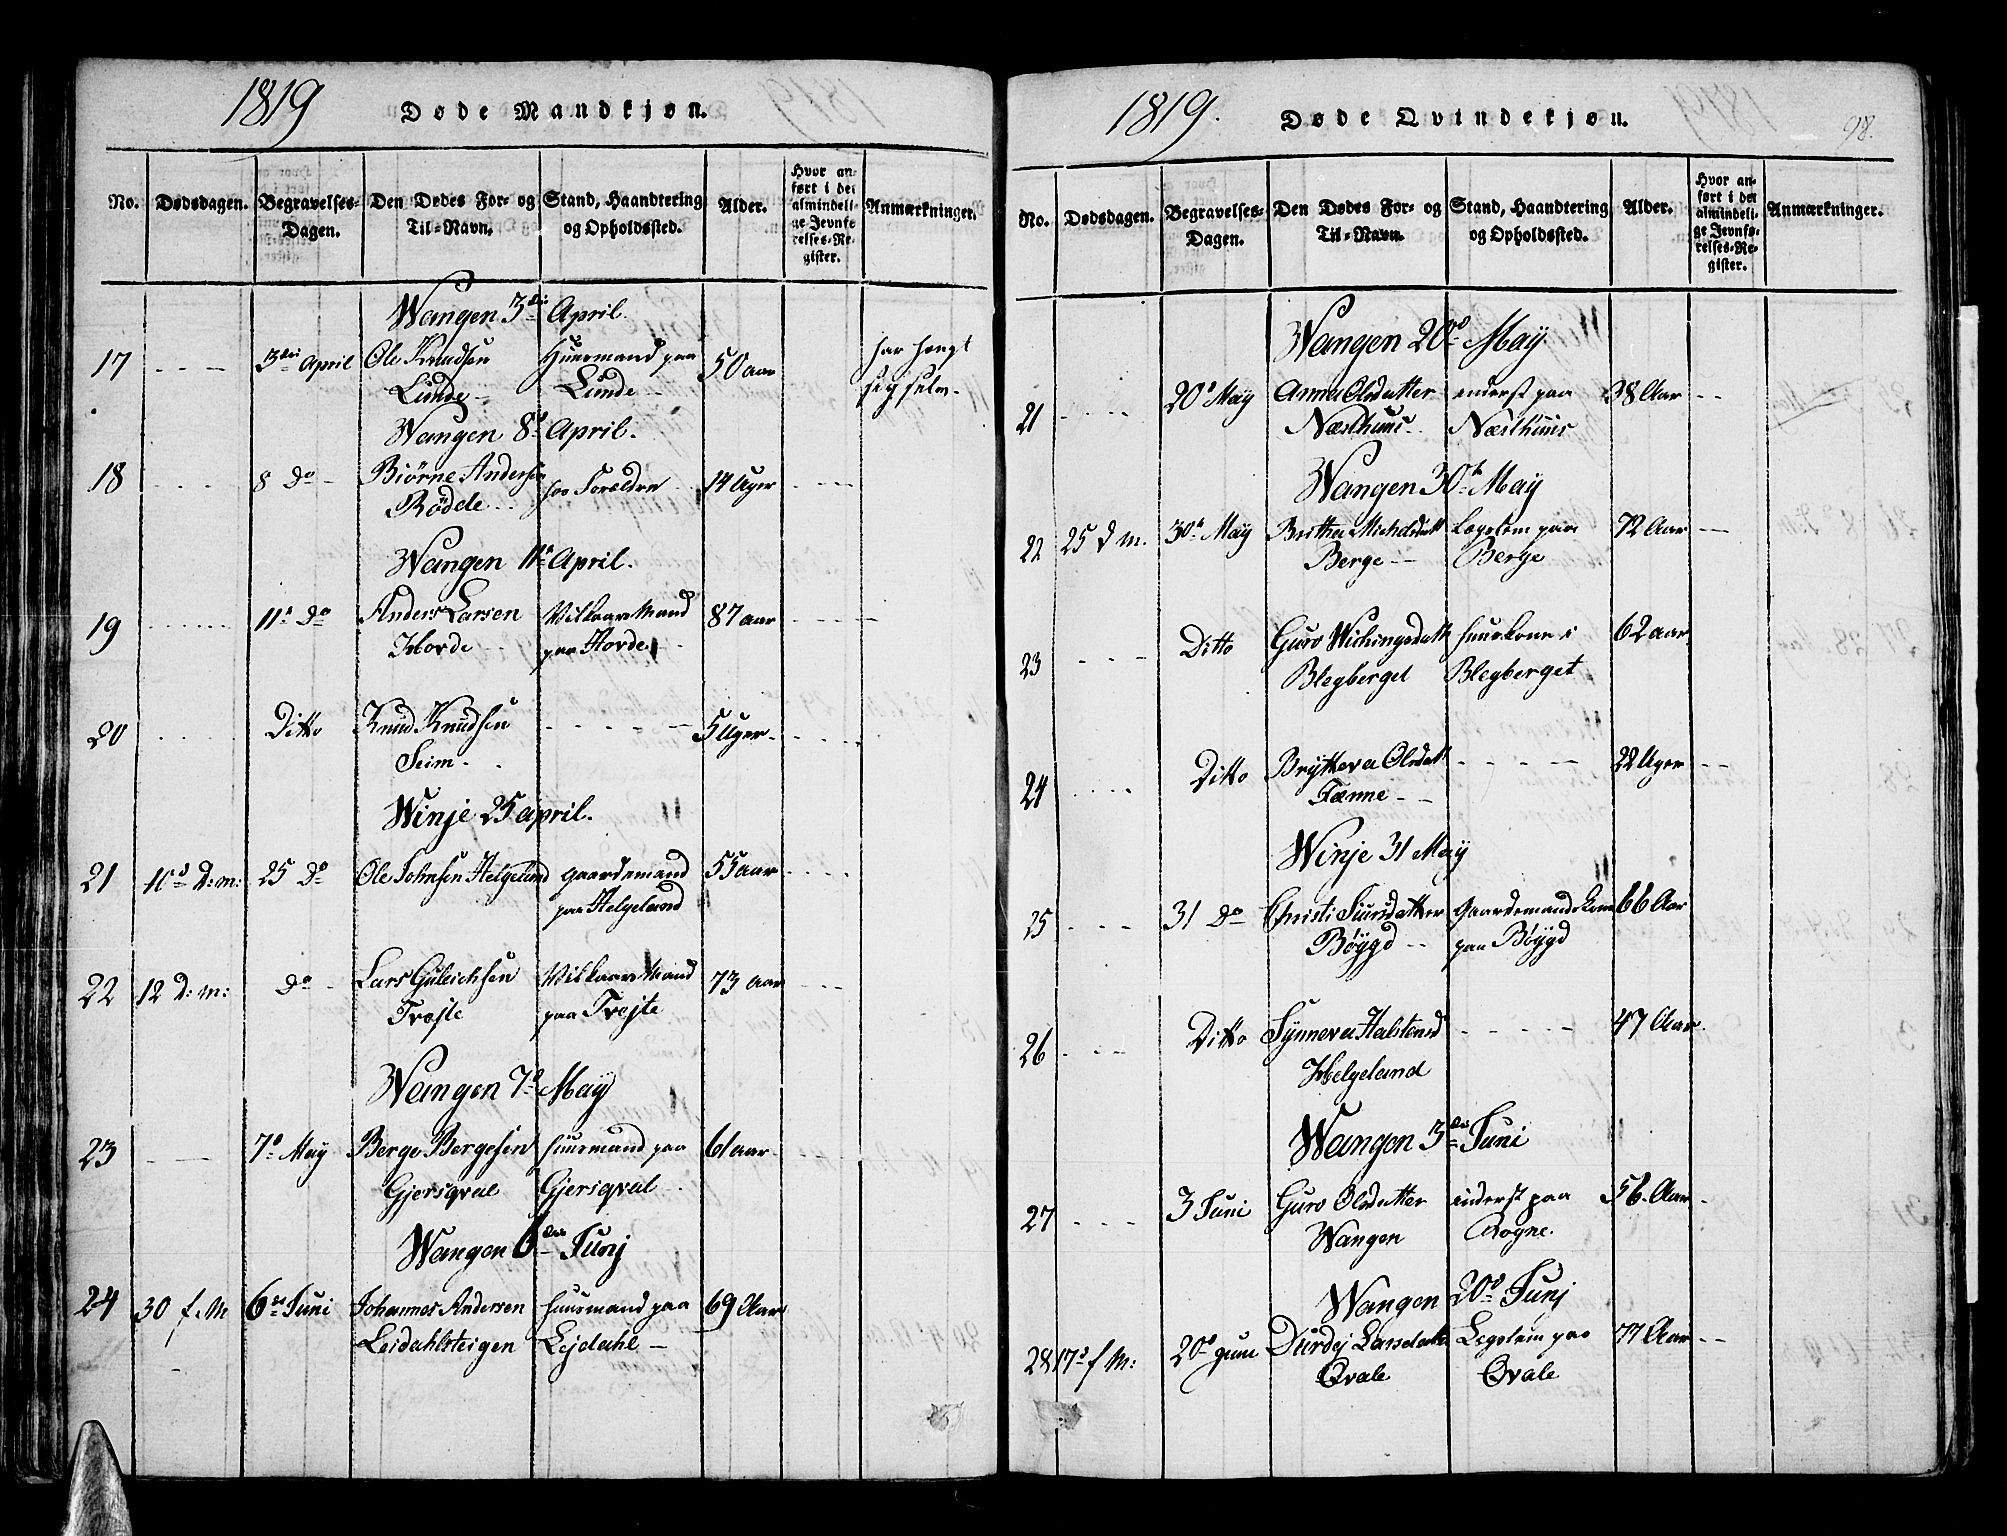 1819 Døde Mandkjøn.
No. Dødsdagen. Begravelses-Dagen. Den Dødes For- og Til-Navn. Stand, Haandtering og Opholdssted. Alder. Hvor anført i det almindelige Jevnførelses-Register. Anmærkninger.
Wangen 3die April
17 - - - 3die April Ole Knudsen Huusmand paa 50 aar har hengt
Lunde - Lunde - sig selv -
Wangen 8d April.
18 - - - - 8 Do - Biørne Andersen hos Forældre 14 Uger - - -
Rödde - - -
Wangen 11te April.
19 - - - - - 11te Do Anders Larsen Vilkaars Mand 87 aar - - - -
Horde - - paa Horde -
20 - - - - - Ditto Knud Knudsen - - - - - - 5 Uger - - - - -
Seim - -
Winje 25 april.
21 10d D: m: 25 Do Ole Johnsen Helgeland gaardemand 55 aar - - - -
paa Helgeland
22 12 D: m: Do - Lars Guleichsen Vilkaars Mand 73 aar - - -
Trøjte paa Trøjte
Wangen 7d May
23 - - - 7d May Berge Bergesen huusmand paa 61 aar - - -
Gjersqval Gjersqval -
Wangen 6die Junj
24 30 f. M 6te Juni Johannes Andersen huusmand paa 69 Aar
Leidahlsteigen Lejdahl -
1819. Døde Qvindekjøn. 98.
No. Dødsdagen. Begravelses-Dagen. Den Dødes For- og Til-Navn. Stand, Haandtering og Opholdssted. Alder. Hvor anført i det almindelige Jevnførelses-Register. Anmærkninger.
Wangen 20d May
21 - - - - 20d May Anna Olsdatter enderst paa 38 Aar - -
Næsthuus - Næsthuus
Wangen 30te May
22 25 d M. 30te May Britha Michelsdatt Legslem paa 72 Aar - -
Berge - - Berge
23 - - - Ditto Guro Wichingsdatt huuskone i 62 aar
Blegberget Blegberget
24 - - - - Ditto Brytteva Olsdatt - - - - - 22 Uger - -
Tænne - -
Winje 31 May
25 - - - 31 Do Christi Siursdatter Gaardemands kone 66 Aar
Böygd - - paa Böygd
26 - - - Ditto Synneva Halstensd - - - - - 47 Aar.
Helgeland
Wangen 3die Juni
27 - - - 3 Juni Guro Olsdatter inderst paa 56. Aar -
Wangen Rogne.
Wangen 20d Junj
28 17d f M: 20d Juni Durdej Larsdatter Legslem paa 77 Aar - -
Qvale Qvale